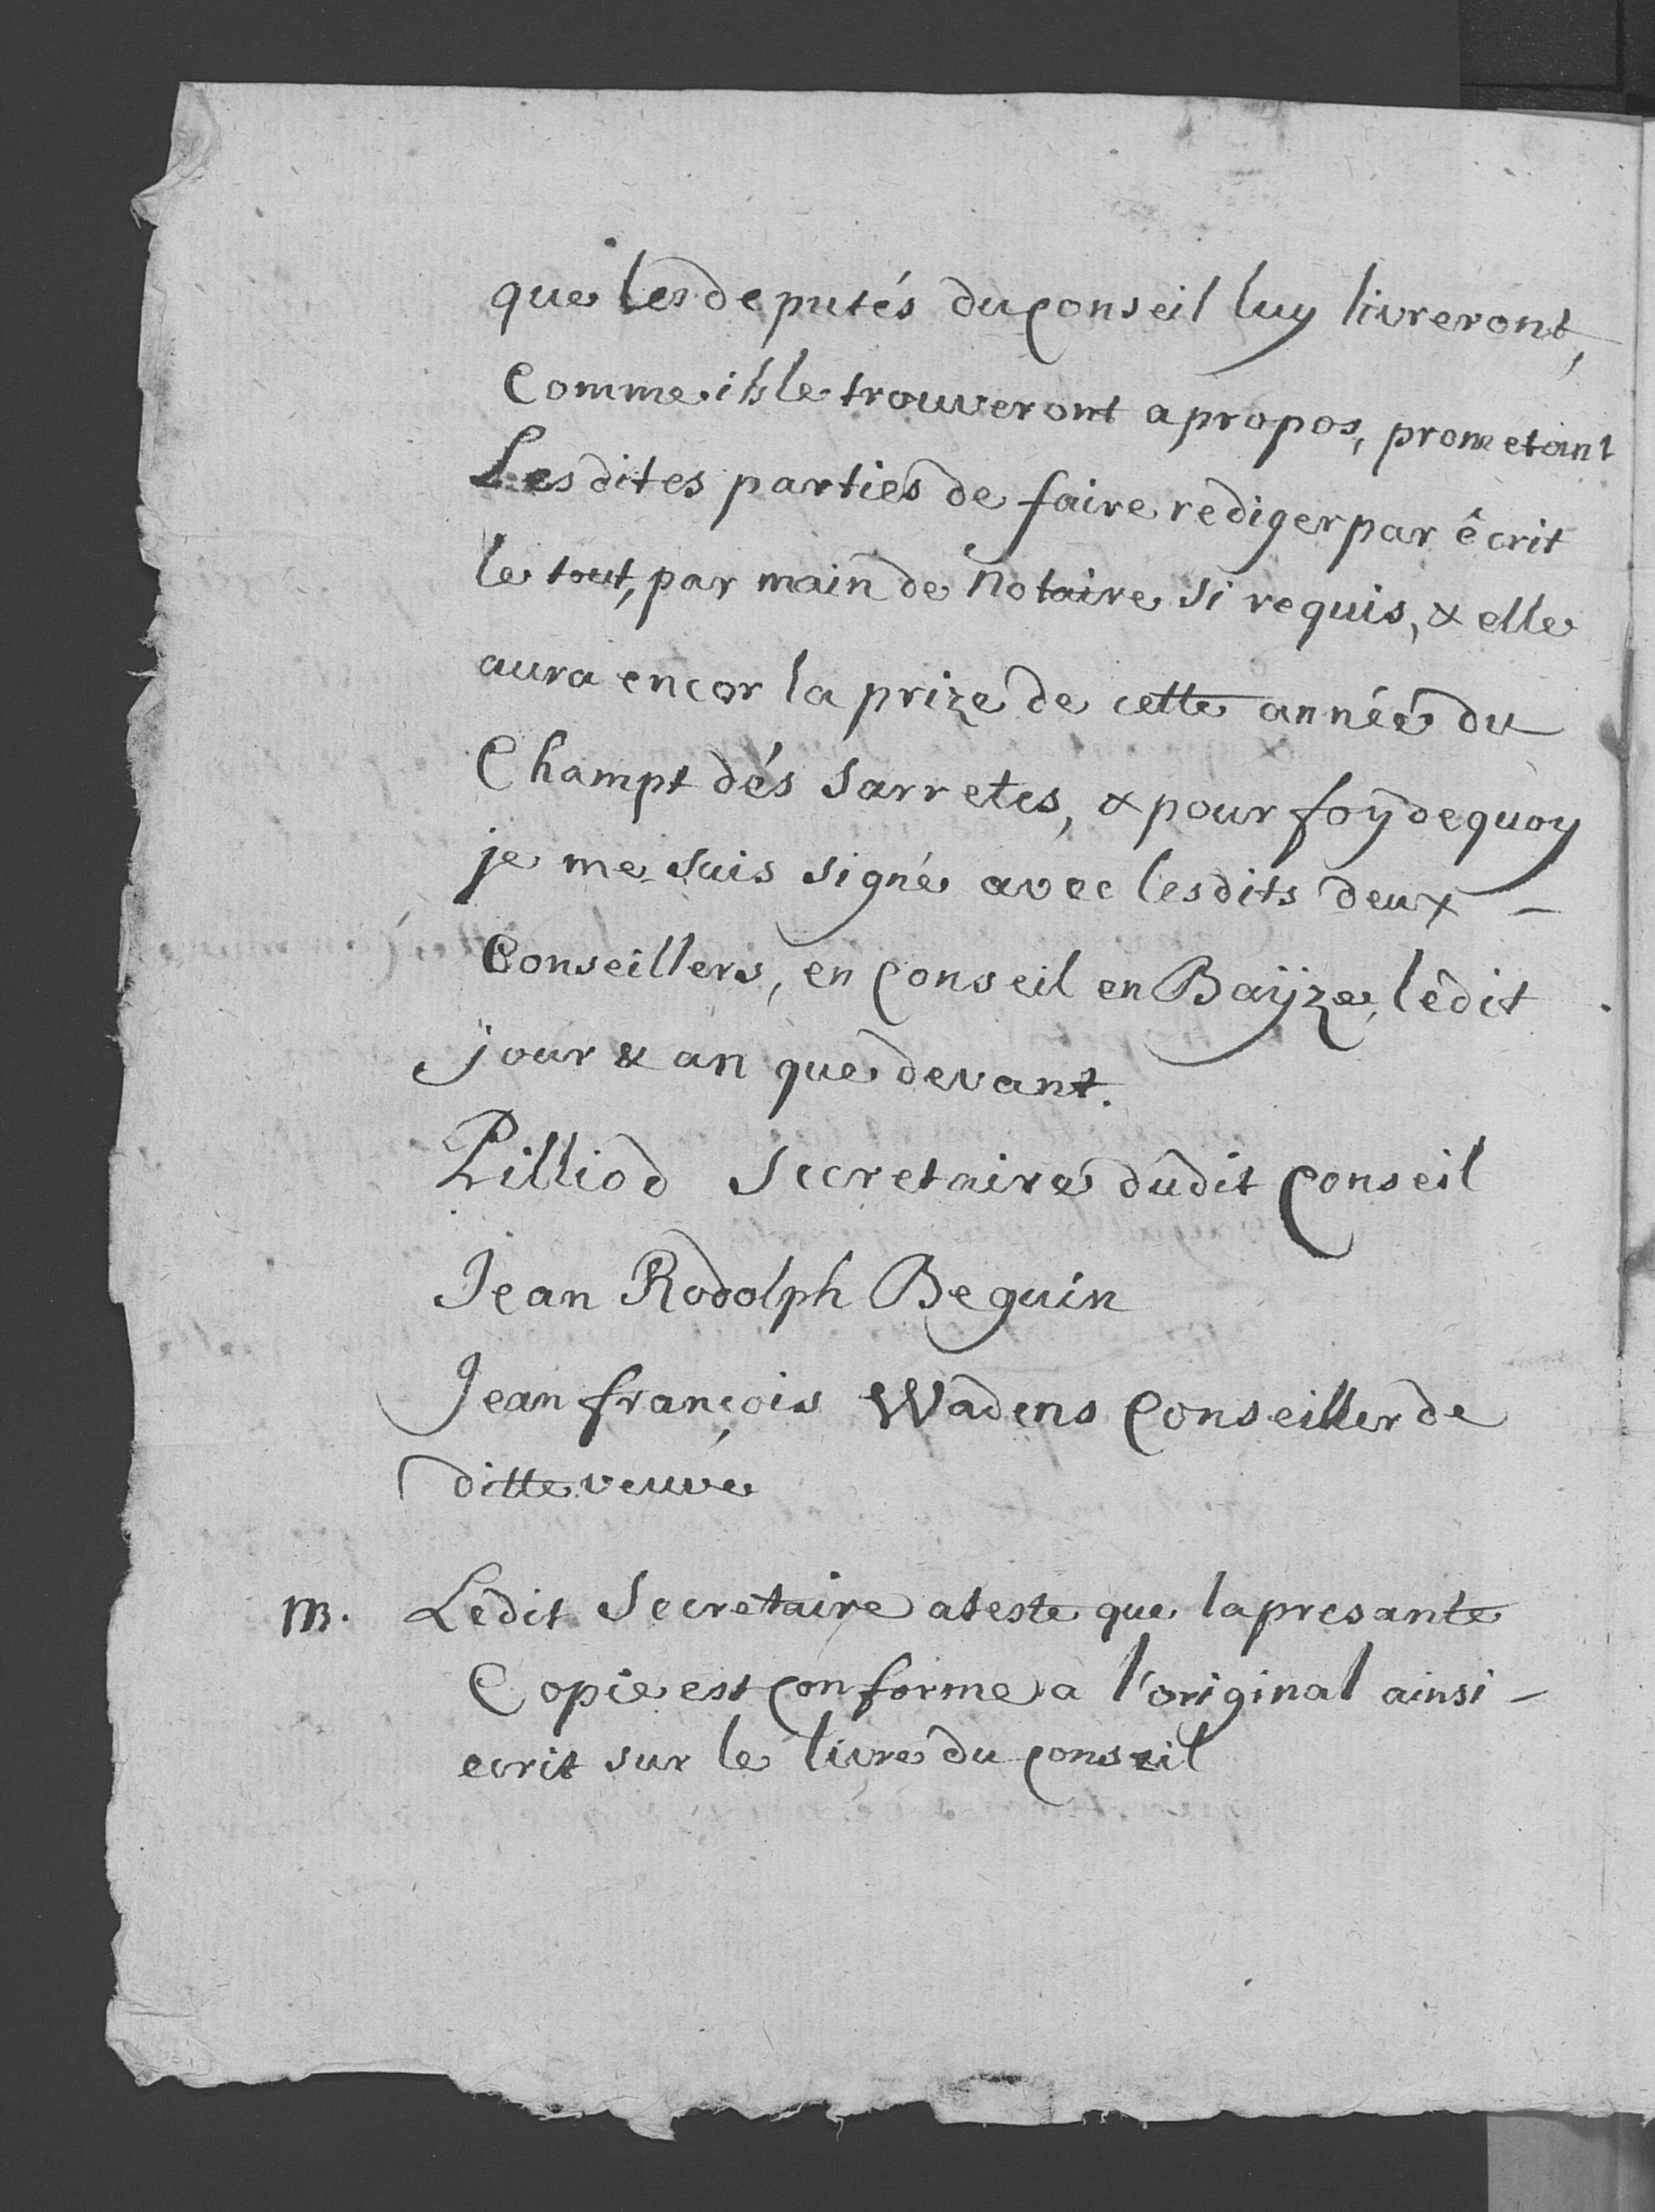 que les deputés du Conseil luy livreront,
Comme ils le trouveront a propos, prometant
Les dites parties de faire rediger par êcrit
le tout, par main de Notaire si requis, & elle
aura encor la prize de cette année du
Champt dés Sarretes, & pour foÿ de quoy
je me suis signé avec lesdits deux –
Conseillers, en Conseil en Baÿze, lédit
jour & an que devant.
Pilliod Secretaire dudit Conseil
Jean Rodolph Beguin
Jean françois Wadens Conseiller de
ditte veuve
NB. Lédit Secretaire ateste que la presante
Copie est Conforme a l'original ainsi –
ecrit sur le livre du Conseil